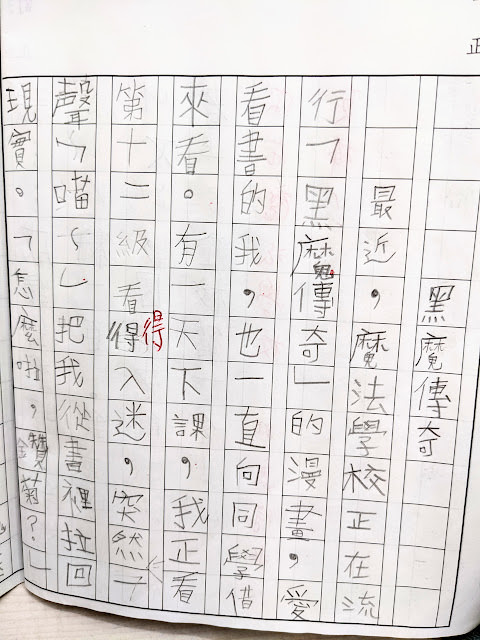 正
黑魔傳奇
最近，魔法學校正在流
行「黑魔傳奇」的漫畫，愛
看書的我，也一直向同學借
來看。有一天下課，我正看
第十二級看得入迷，突然一
得
聲「喵～」把我從書裡拉回
現實。「怎麼啦，鑽菊？」